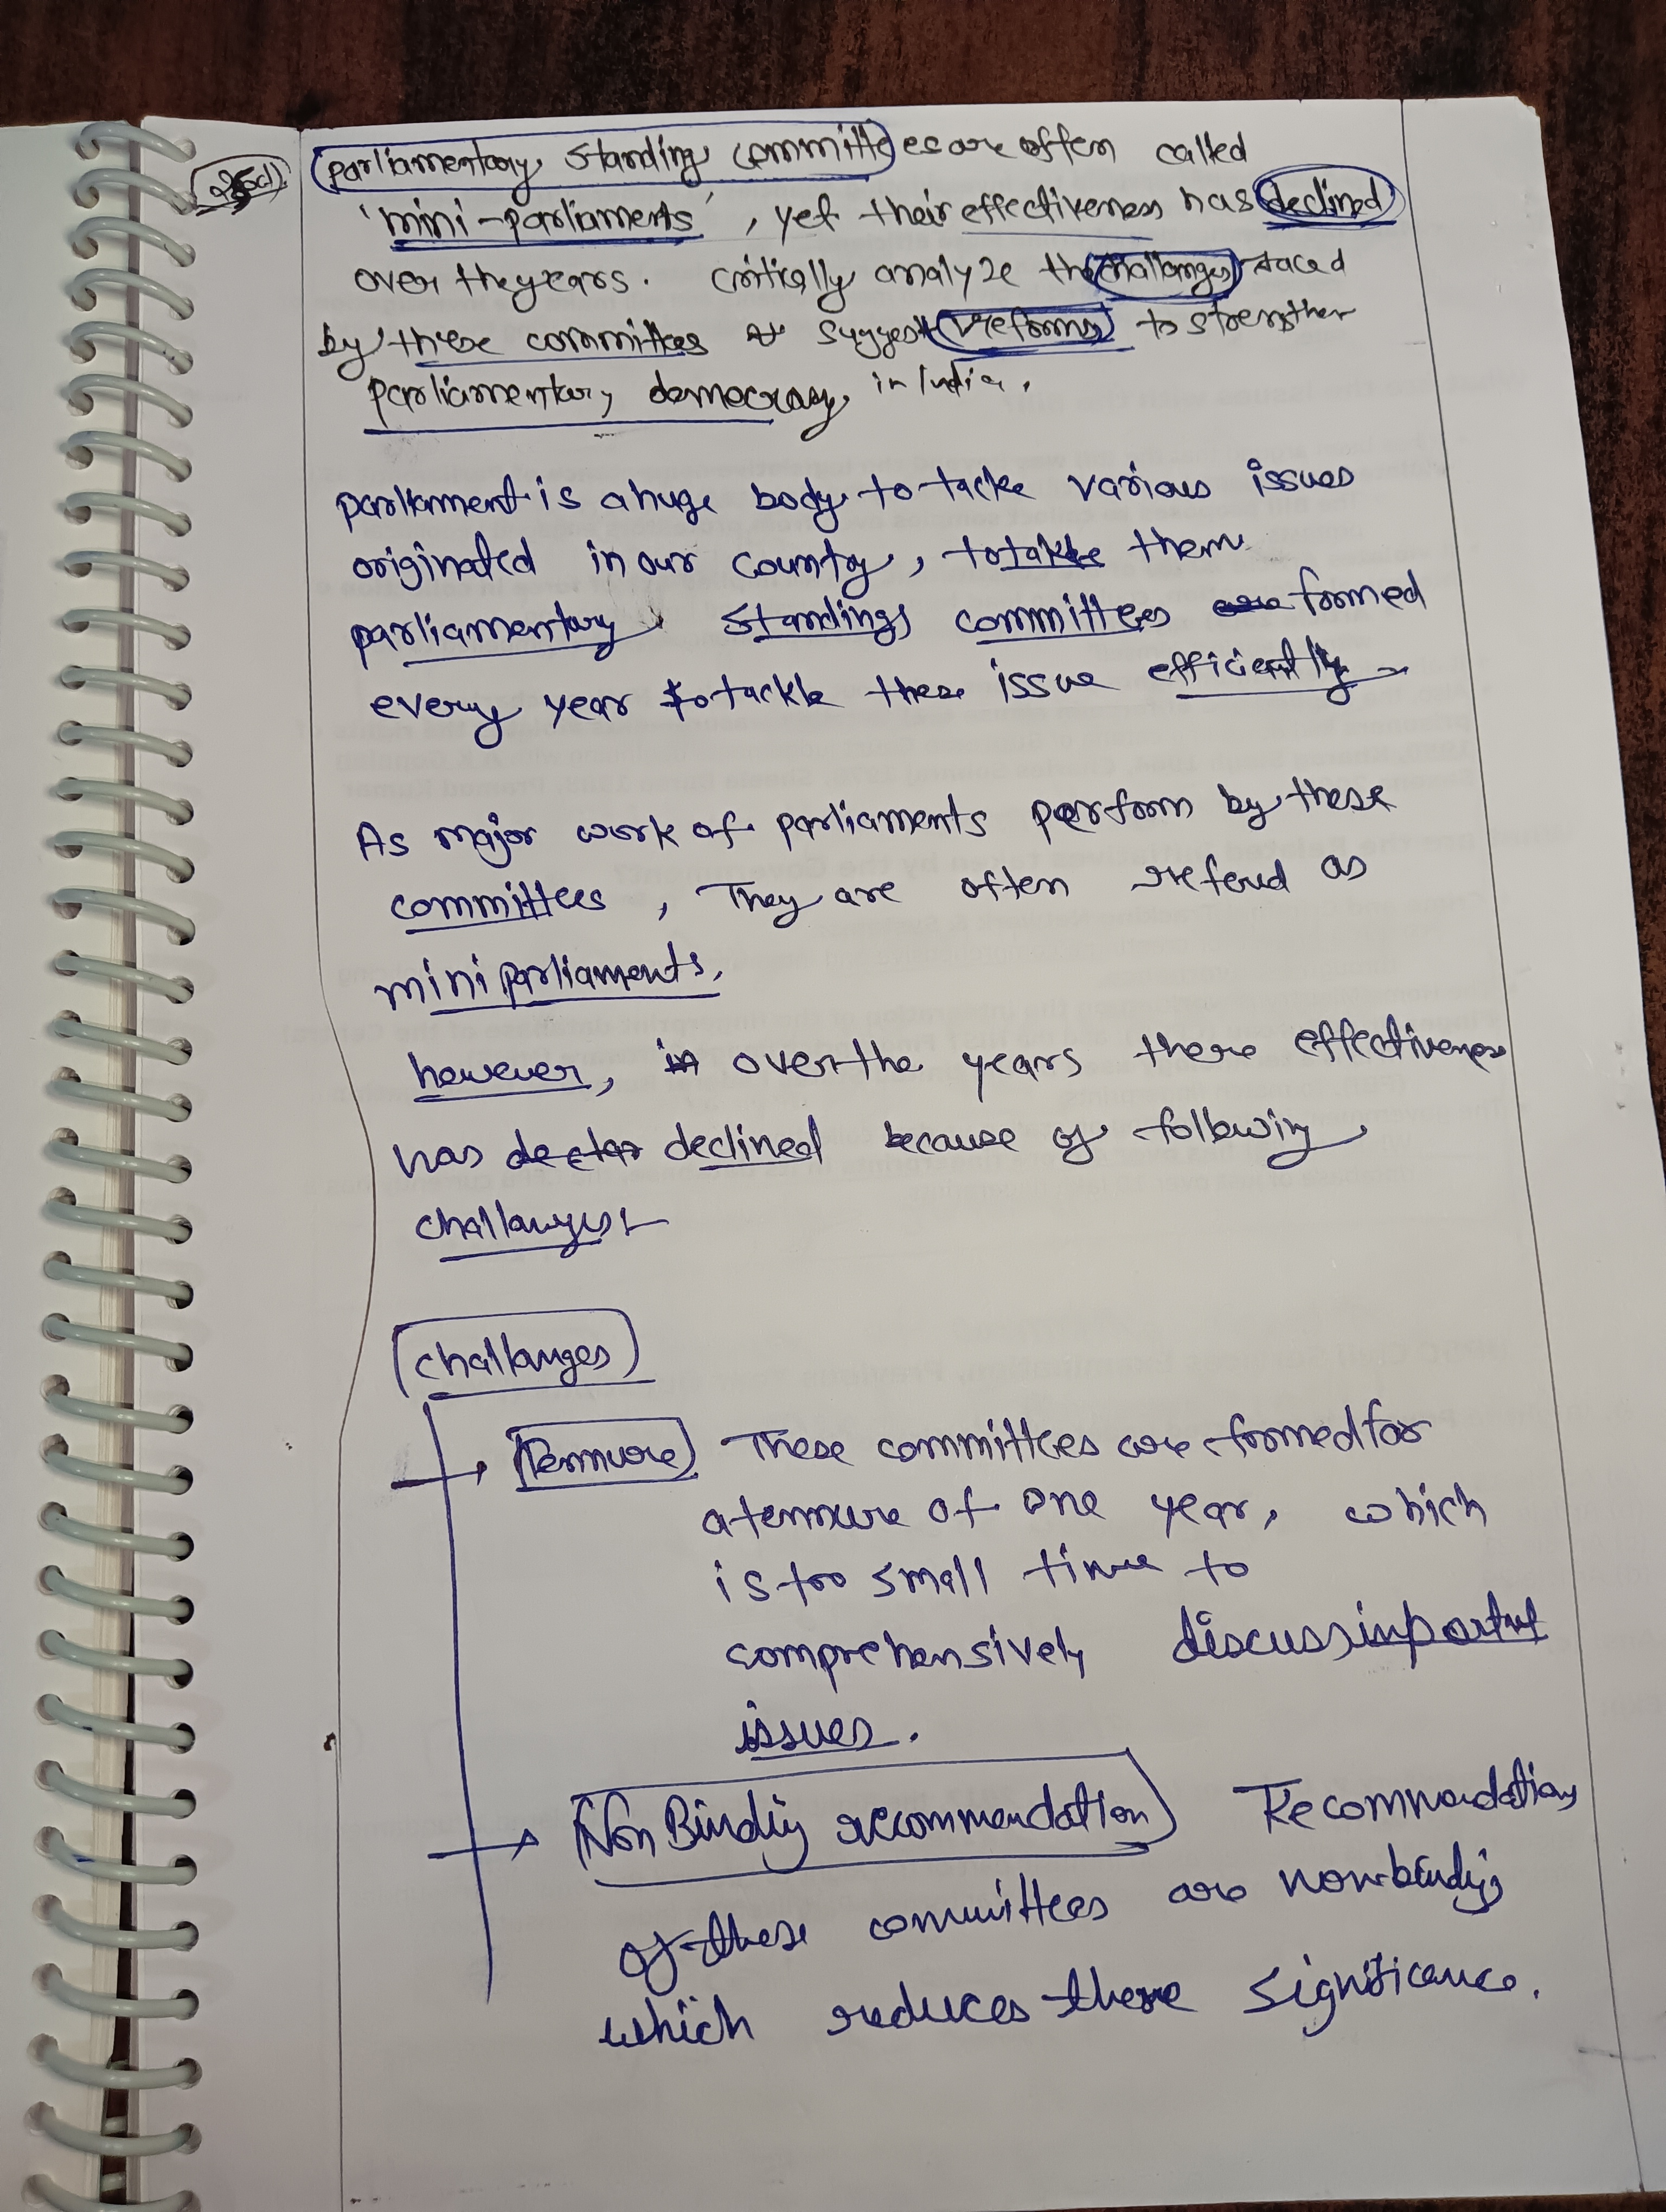 parliamentary standing committees are often called
'mini-parliaments', yet their effectiveness has declined
over the years. critically analyze the challanges faced
by these committees & suggest reforms to strengthen
parliamentary democracy in India.
parliament is a huge body to tackle various issues
originated in our county, to takle them
parliamentary standings committees are formed
every year to tackle these issue efficiently
As major work of parliaments perform by these
committees, They are often refered as
mini parliaments.
however, in over the years there effectiveness
has declined because of following
challanges:-
challanges
Tennure These committees are formed for
a tennure of one year, which
is too small time to
comprehensively discuss importnt
issues.
Non Binding recommendation Recommendations
of these committees are non-binding
which reduces there significance.